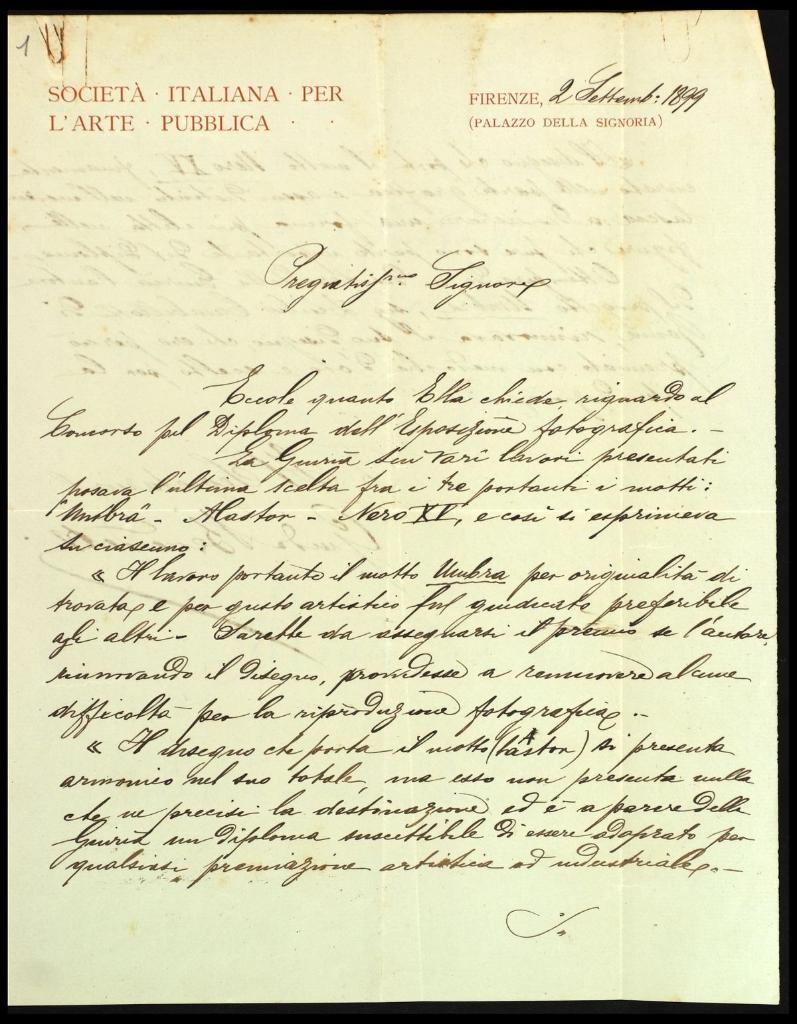 1
SOCIETÀ · ITALIANA · PER
L'ARTE · PUBBLICA · ·
FIRENZE, 2 Settemb: 1899
(PALAZZO DELLA SIGNORIA)
Pregiatissmo Signore
Eccole quanto Ella chiede, riguardo al
Concorso pel Diploma dell'Esposizione fotografica. -
La Giuria sui vari lavori presentati
posava l'ultima scelta fra i tre portanti i motti:
"Umbra" - Alastor - Nero XV, e così si esprimeva
su ciascuno:
« Il lavoro portante il motto Umbra per originalità di
trovata e per gusto artistico fu giudicato preferibile
agli altri - Sarebbe da assegnarsi il premio se l'autore,
rinnovando il disegno, provvedesse a rimuovere alcune
difficoltà per la riproduzione fotografica. -
« Il disegno che porta il motto (Alastor) si presenta
armonico nel suo totale, ma esso non presenta nulla
che ne precisi la destinazione ed è a parere della
Giuria un diploma suscettibile di essere adoprato per
qualsiasi premiazione artistica od industriale. -